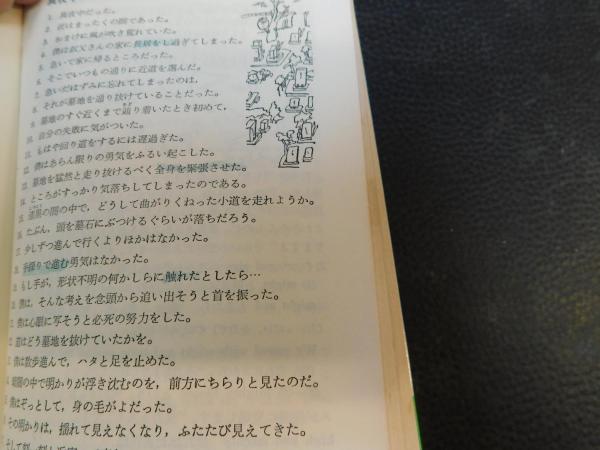 1. 真夜中だった。
2. 夜はまったくの闇であった。
3. おまけに風が吹き荒れていた。
4. 僕は叔父さんの家に長居をし過ぎてしまった。
5. 急いで家に帰るところだった。
6. そこでいつもの通りに近道を選んだ。
7. 急いだはずみに忘れてしまったのは、
8. それが墓地を通り抜けていることだった。
9. 墓地のすぐ近くまで辿り着いたとき初めて、
10. 自分の失敗に気がついた。
11. もはや回り道をするには遅過ぎた。
12. 僕はあらん限りの勇気をふるい起こした。
13. 墓地を猛然と走り抜けるべく全身を緊張させた。
14. ところがすっかり気落ちしてしまったのである。
15. 漆黒の闇の中で、どうして曲がりくねった小道を走れようか。
16. たぶん、頭を墓石にぶつけるぐらいが落ちだろう。
17. 少しずつ進んで行くよりほかはなかった。
18. 手探りで進む勇気はなかった。
もし手が、形状不明の何かしらに触れたとしたら…
僕は、そんな考えを念頭から追い出そうと首を振った。
僕は心眼に写そうと必死の努力をした。
道はどう墓地を抜けていたかを。
僕は数歩進んで、ハタと足を止めた。
暗闇の中で明かりが浮き沈むのを、前方にちらりと見たのだ。
僕はぞっとして、身の毛がよだった。
その明かりは、揺れて見えなくなり、ふたたび見えてきた。